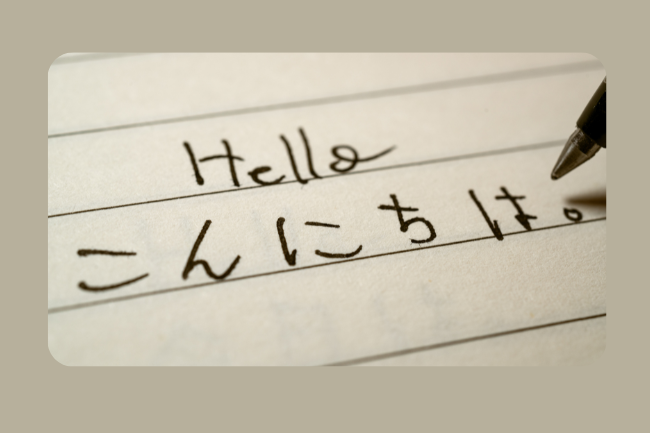 Hello
こんにちは。